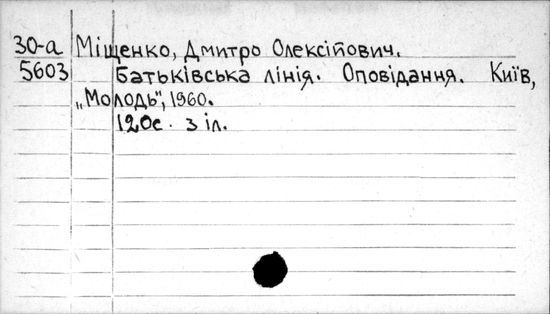 30-а Міщенко, Дмитро Олексійович.
5603 Батьківська лінія. Оповідання. Київ,
„Молодь", 1960.
120с. з іл.